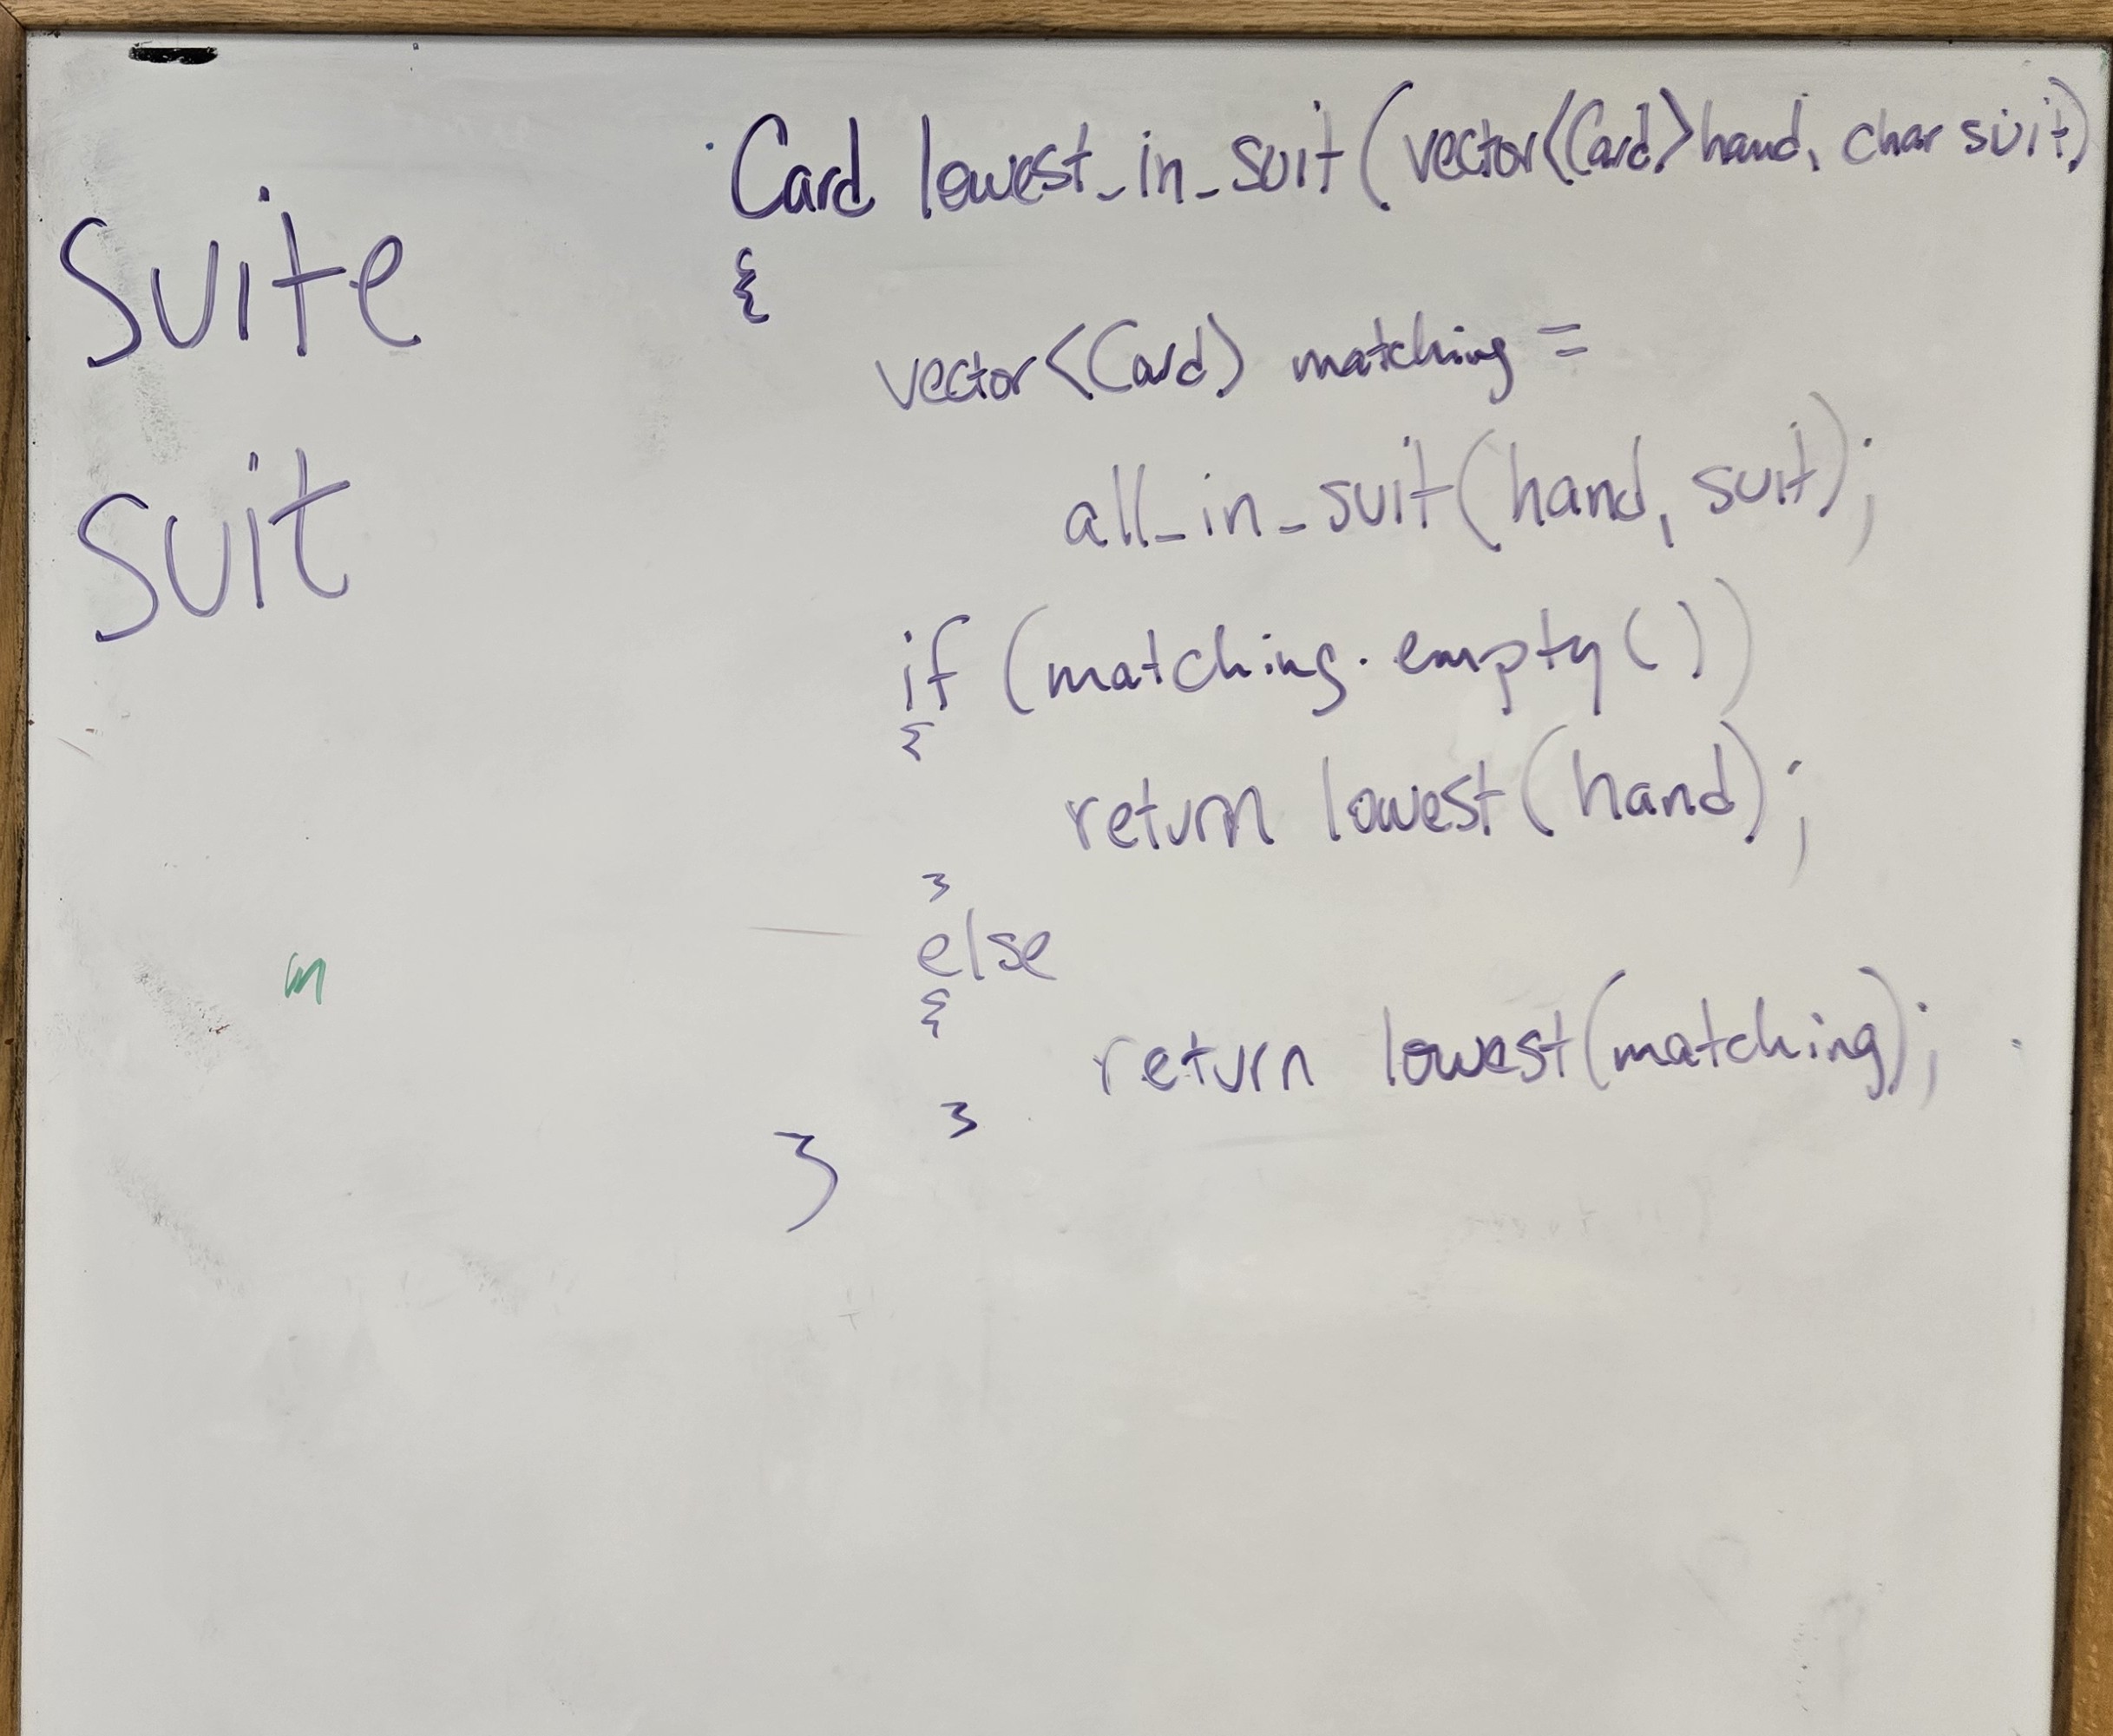 suite
suit
Card lowest_in_suit(vector<Card>hand, char suit)
{
vector<Card> matching =
all_in_suit(hand, suit);
if (matching.empty())
{
return lowest(hand);
}
else
{
return lowest(matching);
}
}